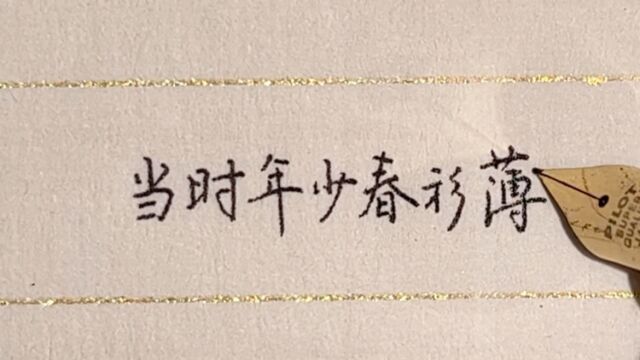 当时年少春衫薄
PILOT
SUPER
QUA